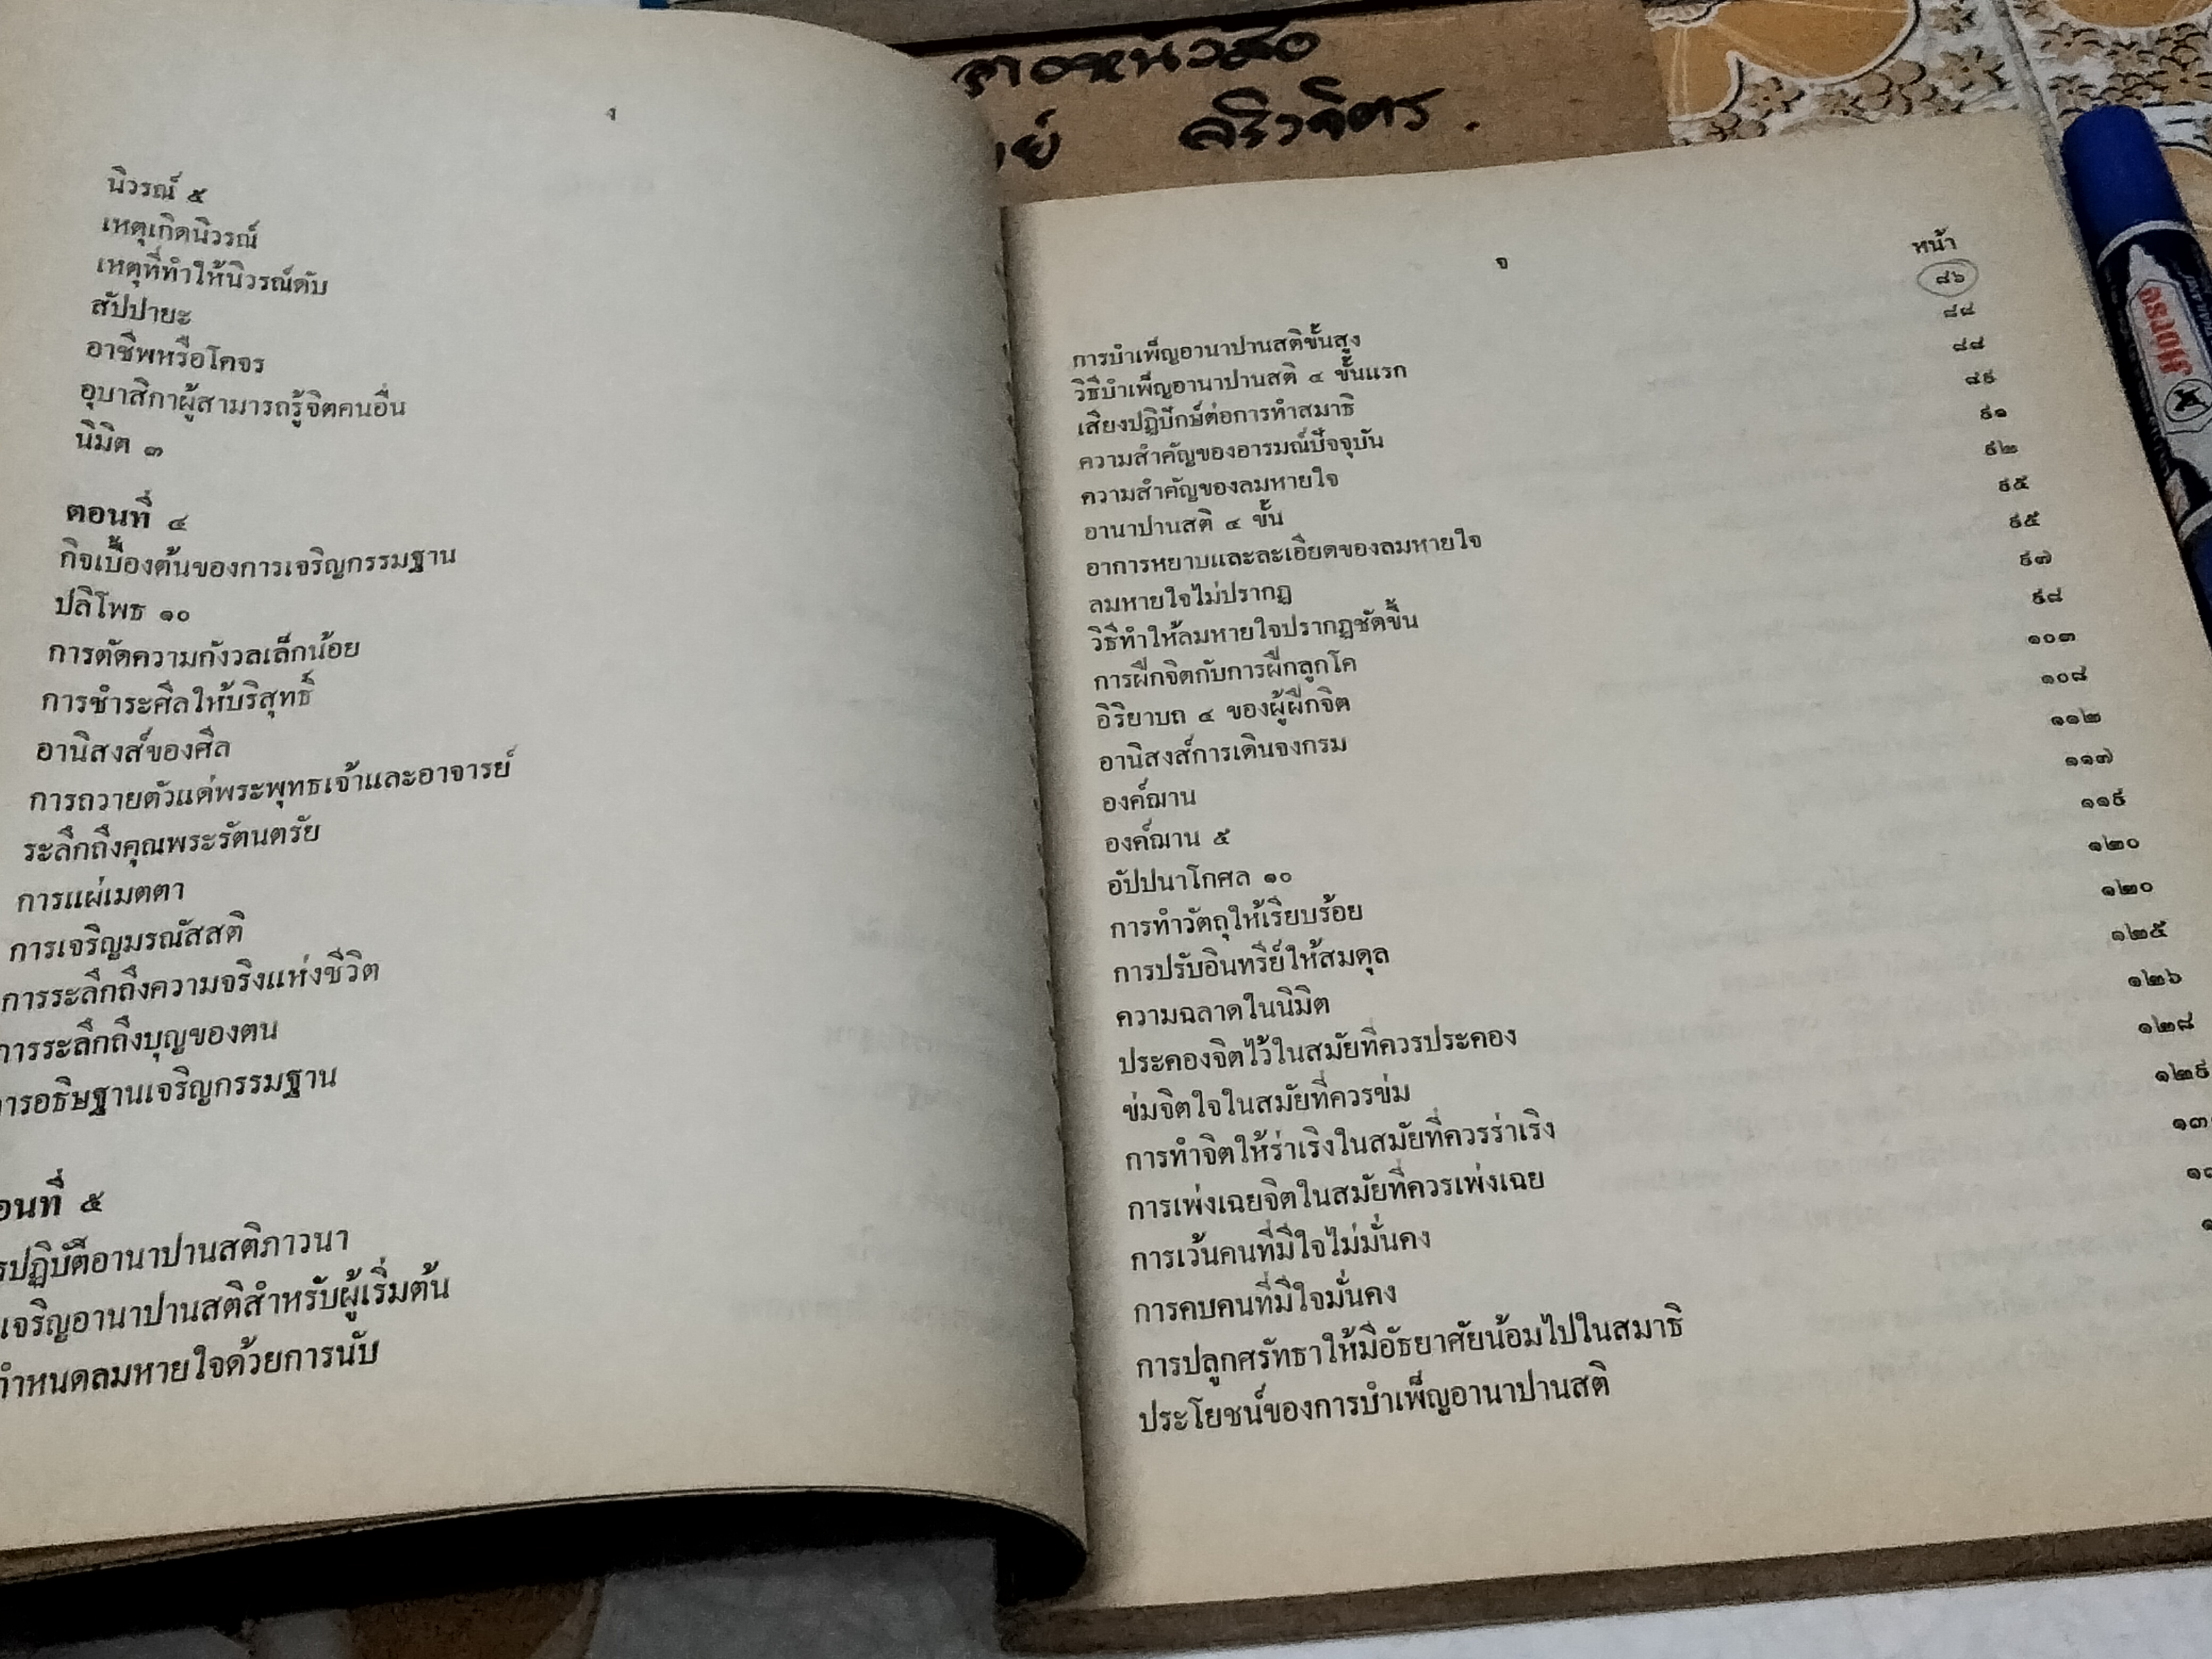 ง
นิวรณ์ ๕
เหตุเกิดนิวรณ์
เหตุที่ทำให้นิวรณ์ดับ
สัปปายะ
อาชีพหรือโคจร
อุบาสิกาผู้สามารถรู้จิตคนอื่น
นิมิต ๓
ตอนที่ ๔
กิจเบื้องต้นของการเจริญกรรมฐาน
ปลิโพธ ๑๐
การตัดความกังวลเล็กน้อย
การชำระศีลให้บริสุทธิ์
อานิสงส์ของศีล
การถวายตัวแด่พระพุทธเจ้าและอาจารย์
ระลึกถึงคุณพระรัตนตรัย
การแผ่เมตตา
การเจริญมรณัสสติ
การระลึกถึงความจริงแห่งชีวิต
การระลึกถึงบุญของตน
ารอธิษฐานเจริญกรรมฐาน
อนที่ ๕
รปฏิบัติอานาปานสติภาวนา
เจริญอานาปานสติสำหรับผู้เริ่มต้น
กำหนดลมหายใจด้วยการนับ
จ
หน้า
การบำเพ็ญอานาปานสติขั้นสูง ๘๖
วิธีบำเพ็ญอานาปานสติ ๔ ขั้นแรก ๘๘
เสียงปฏิปักษ์ต่อการทำสมาธิ ๘๘
ความสำคัญของอารมณ์ปัจจุบัน ๘๙
ความสำคัญของลมหายใจ ๙๑
อานาปานสติ ๔ ขั้น ๙๒
อาการหยาบและละเอียดของลมหายใจ ๙๕
ลมหายใจไม่ปรากฏ ๙๕
วิธีทำให้ลมหายใจปรากฏชัดขึ้น ๙๗
การฝึกจิตกับการฝึกลูกโค ๙๘
อิริยาบถ ๔ ของผู้ฝึกจิต ๑๐๓
อานิสงส์การเดินจงกรม ๑๐๘
องค์ฌาน ๑๑๒
องค์ฌาน ๕ ๑๑๗
อัปปนาโกศล ๑๐ ๑๑๙
การทำวัตถุให้เรียบร้อย ๑๒๐
การปรับอินทรีย์ให้สมดุล ๑๒๐
ความฉลาดในนิมิต ๑๒๕
ประคองจิตไว้ในสมัยที่ควรประคอง ๑๒๖
ข่มจิตใจในสมัยที่ควรข่ม ๑๒๘
การทำจิตให้ร่าเริงในสมัยที่ควรร่าเริง ๑๒๙
การเพ่งเฉยจิตในสมัยที่ควรเพ่งเฉย
การเว้นคนที่มีใจไม่มั่นคง
การคบคนที่มีใจมั่นคง
การปลูกศรัทธาให้มีอัธยาศัยน้อมไปในสมาธิ
ประโยชน์ของการบำเพ็ญอานาปานสติ
ตราม้า